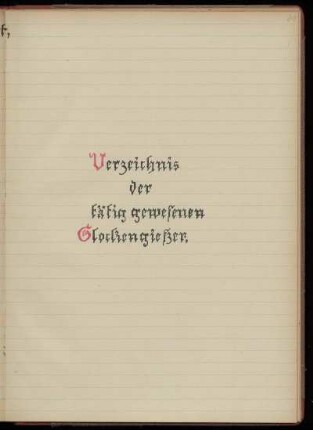 Verzeichnis
der
tätig gewesenen
Glockengießer.